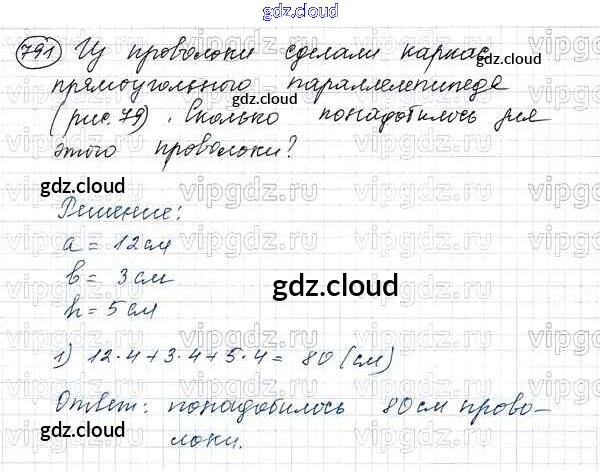 gdz.cloud
791 Из проволоки сделали каркас
прямоугольного параллелепипеда
(рис. 79). Сколько понадобилось для
этого проволоки?
Решение:
a = 12 см
b = 3 см
h = 5 см
1) 12·4+3·4+5·4= 80 (см)
Ответ: понадобилось 80 см прово-
локи.
gdz.cloud
gdz.cloud
gdz.cloud
gdz.cloud
gdz.cloud
gdz.cloud
gdz.cloud
vipgdz.ru